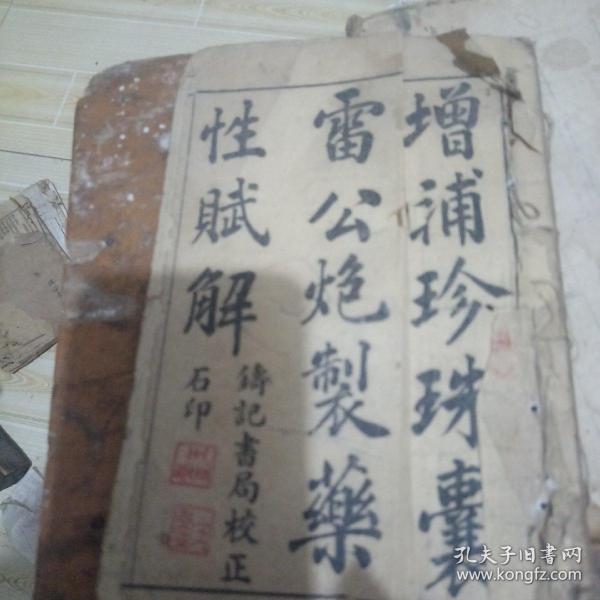 增補珍珠囊
雷公炮製藥
性賦解
鑄記書局校正
石印
孔夫子旧书网
www.kongfz.com